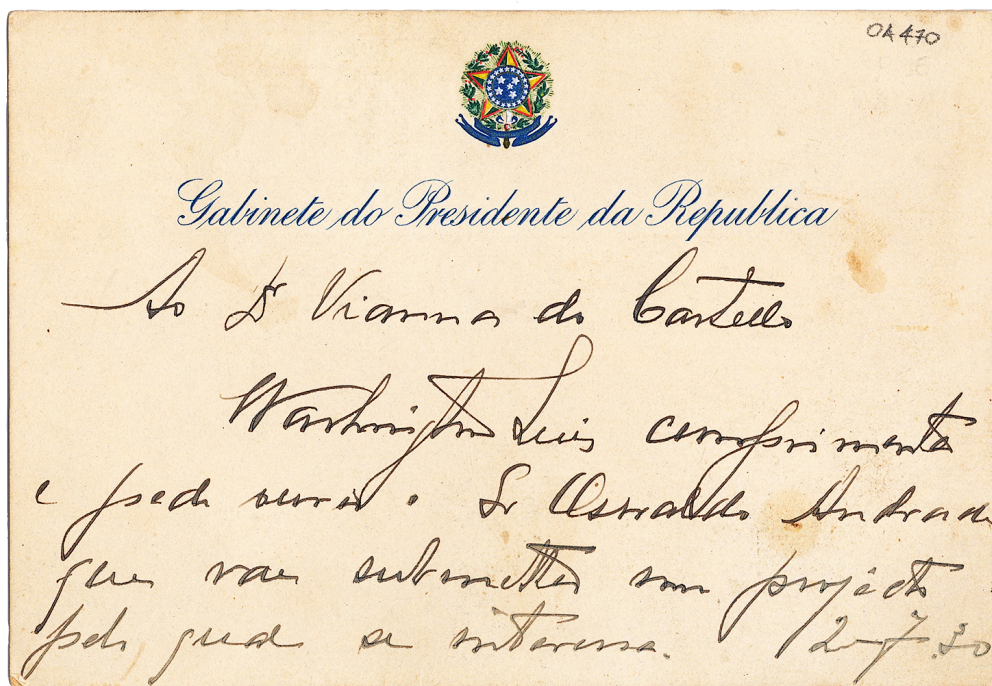 OA 470
Gabinete do Presidente da Republica
Ao Dr Vianna do Castello
Washington Luis comprimenta
e pede ouvir o Sr Oswaldo Andrade
que vae submetter um projecto
pelo qual se interessa. 2-7-30